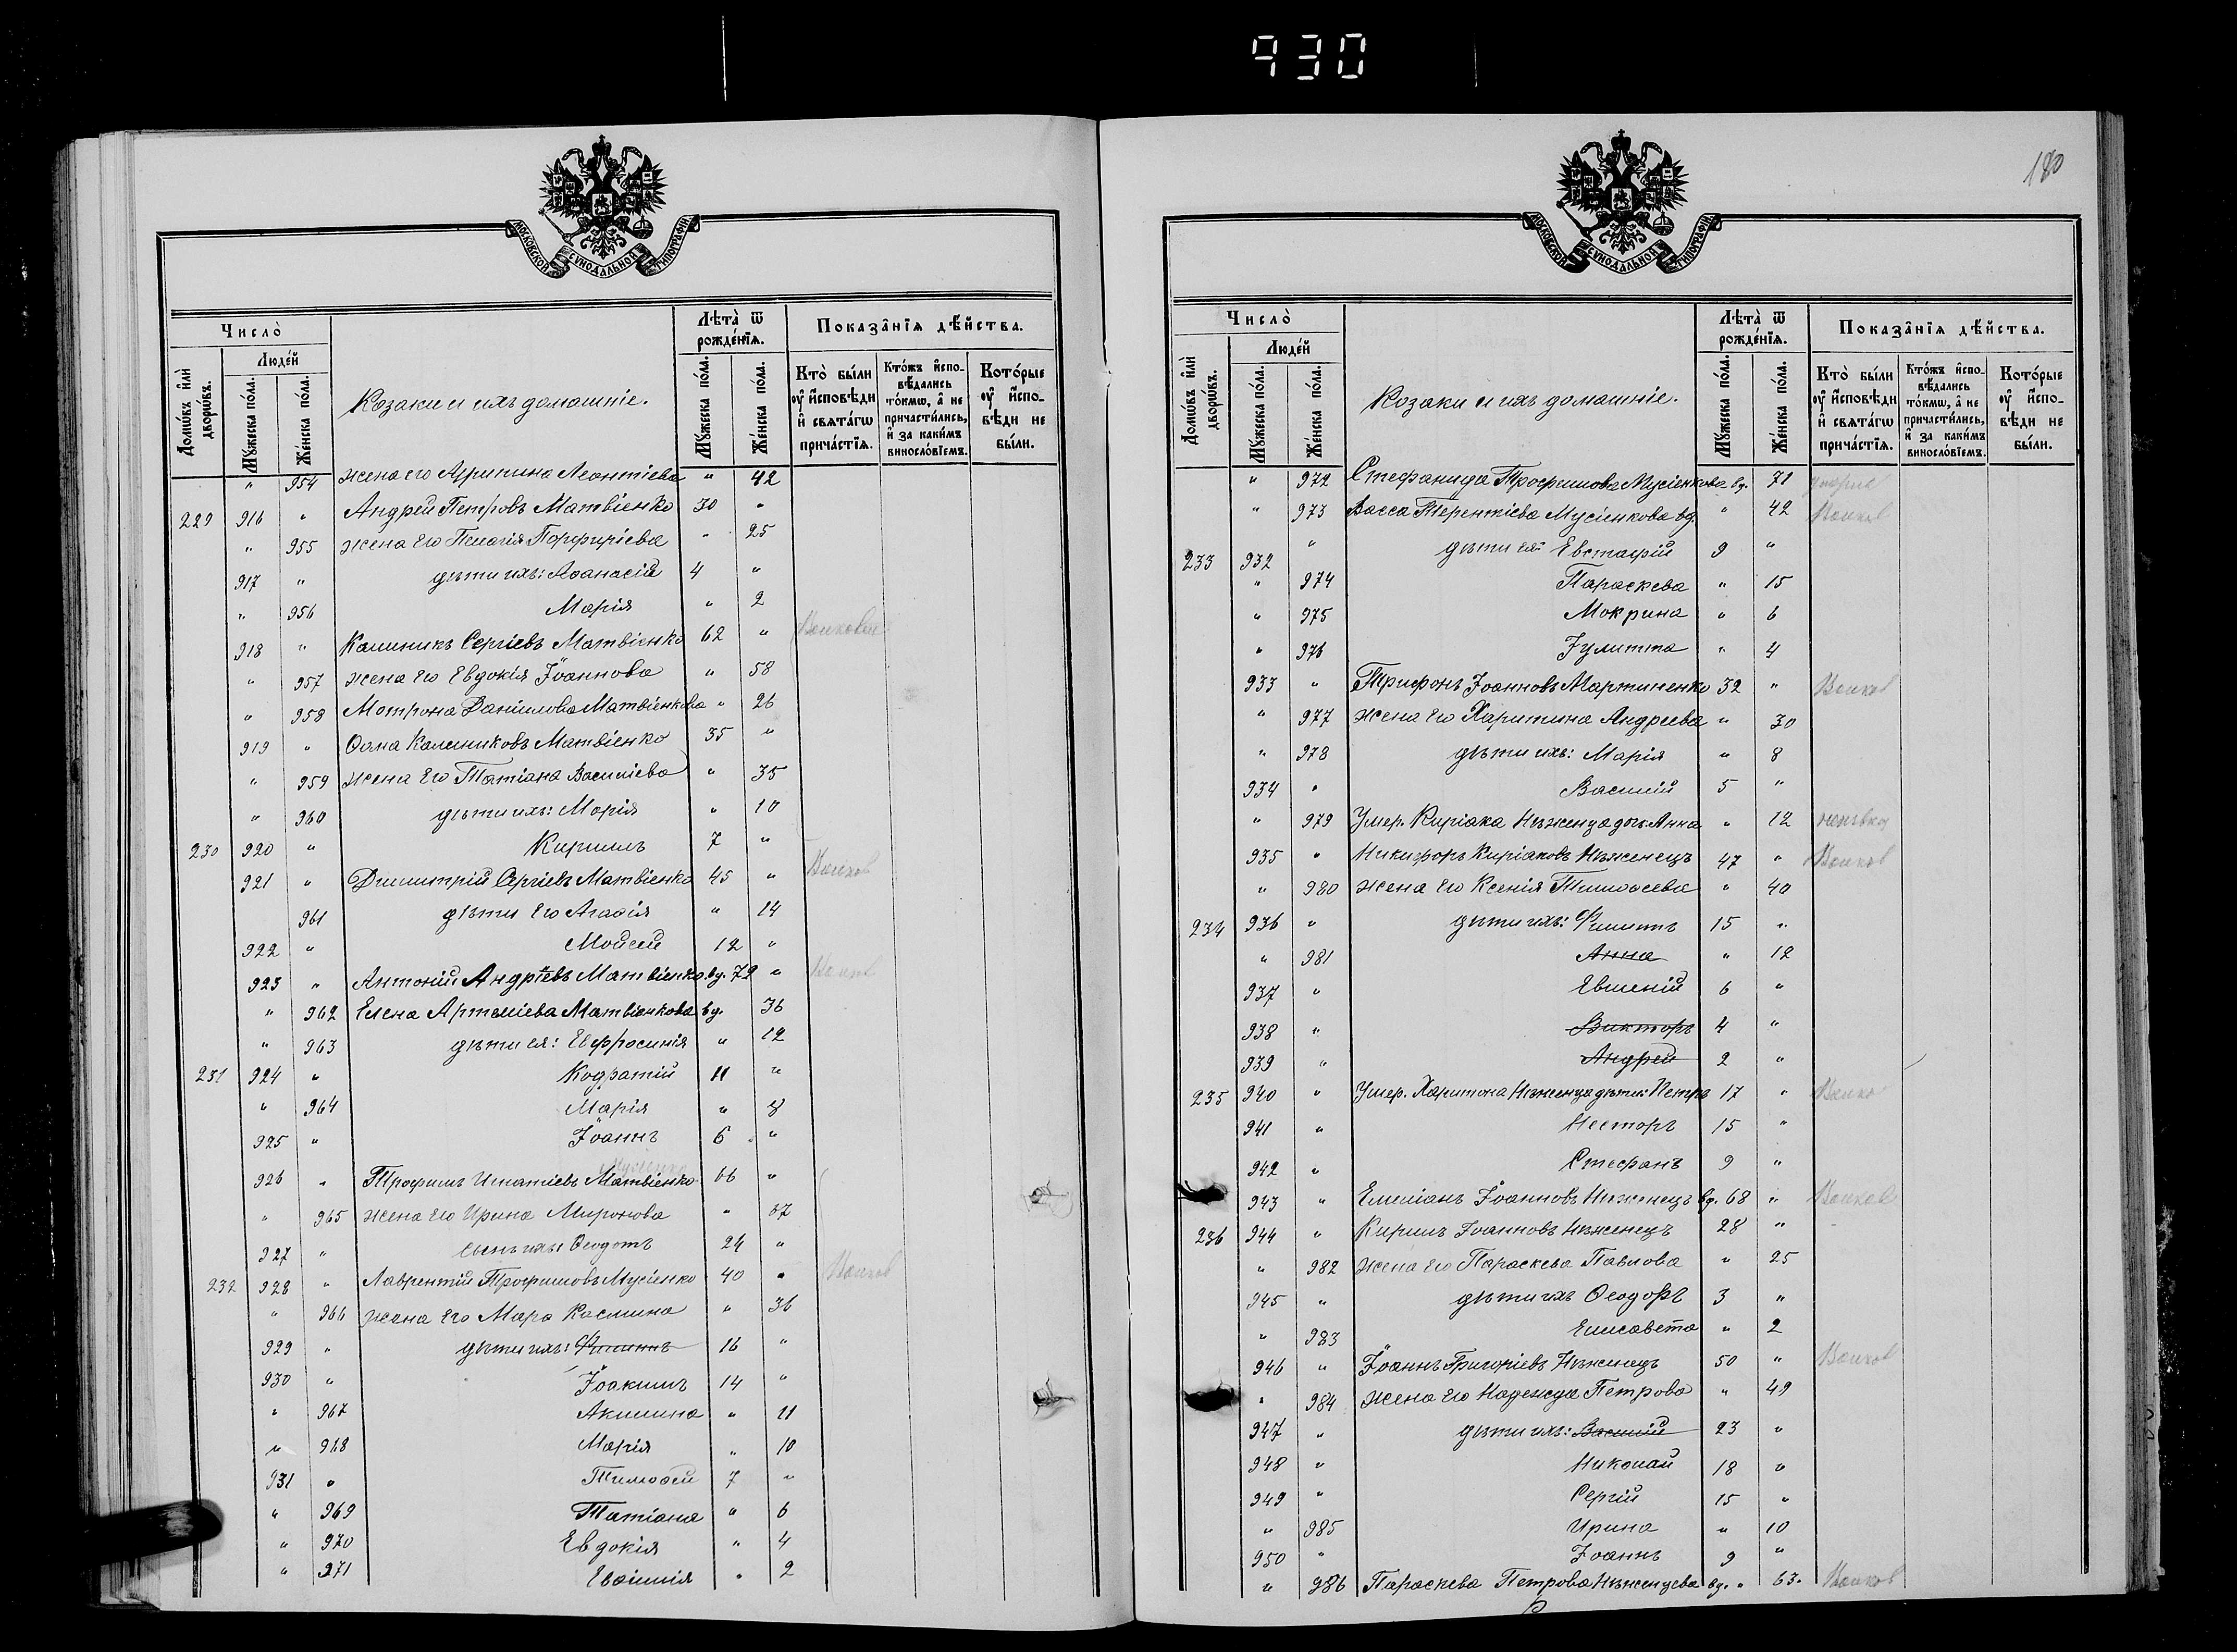 930
МОСКОВСКОЙ СѴНОДАЛЬНОЙ ТИПОГРАФІИ
Число̀
Лѣта̀ ѿ рожде́нїѧ.
Показа̂нїѧ дѣ́йства.
Домѡ́въ и҆лѝ дворѡ́въ.
Люде́й
Мꙋ́жеска по́ла.
Же́нска по́ла.
Козаки и ихъ домашніе.
Мꙋ́жеска по́ла.
Же́нска по́ла.
Кто̀ бы́ли оу҆ и҆́сповѣди и҆ свѧта́гѡ прича́стїѧ.
Кто́жъ и҆спо-вѣ́дались то́кмѡ, а҆ не причасти́лись, и҆ за каки́мъ винослѡ́вїемъ.
Кото́рые оу҆ и҆спо-вѣди не бы́ли.
" 954 жена его Агрипина Леонтіева " 42
229 916 " Андрей Петровъ Матвіенко 30 "
" 955 жена его Пелагія Порфиріева " 25
917 " дѣти ихъ: Аѳанасій 4 "
" 956 Марія " 2
918 " Калиникъ Сергіевъ Матвіенко 62 "
" 957 жена его Евдокія Іоаннова " 58
" 958 Мотрона Даніилова Матвіенкова " 26
919 " Ѳома Калениковъ Матвіенко 35 "
" 959 жена его Татіана Василіева " 35
" 960 дѣти ихъ: Марія " 10
230 920 " Кириллъ 7 "
921 " Димитрій Сергіевъ Матвіенко 45 " Волков
961 дѣти его Агаѳія " 14
922 " Моисей 12 "
923 " Антоній Андріевъ Матвіенко вд. 72 " Волков
" 962 Елена Артеміева Матвіенкова вд. 36
" 963 дѣти ея: Евфросинія " 12
231 924 " Кодратій 11 "
" 964 Марія " 8
925 " Іоаннъ 6 "
926 " Трофимъ Игнатіевъ Матвіенко 66 "
" 965 жена его Ирина Миронова " 67
927 " сынъ ихъ: Ѳеодотъ 24 "
232 928 " Лаврентій Трофимовъ Мусіенко 40 " Волков
" 966 жена его Мара Касмина " 36
929 " дѣти ихъ: Филиппъ 16 "
930 " Іоакимъ 14 "
" 967 Акилина " 11
" 968 Марія " 10
931 " Тимоѳей 7 "
" 969 Татіана " 6
" 970 Евдокія " 4
" 971 " 2
180
МОСКОВСКОЙ СѴНОДАЛЬНОЙ ТИПОГРАФІИ
Число̀
Лѣта̀ ѿ рожде́нїѧ.
Показа̂нїѧ дѣ́йства.
Домѡ́въ и҆лѝ дворѡ́въ.
Люде́й
Мꙋ́жеска по́ла.
Же́нска по́ла.
Козаки и ихъ домашніе.
Мꙋ́жеска по́ла.
Же́нска по́ла.
Кто̀ бы́ли оу҆ и҆́сповѣди и҆ свѧта́гѡ прича́стїѧ.
Кто́жъ и҆спо-вѣ́дались то́кмѡ, а҆ не причасти́лись, и҆ за каки́мъ винослѡ́вїемъ.
Кото́рые оу҆ и҆спо-вѣди не бы́ли.
" 972 Стефанида Трофимова Мусіенкова вд. 71
" 973 Васса Терентіева Мусіенкова вд. " 42 Волков
233 932 " дѣти ея: Евстафій 9 "
" 974 Параскева " 15
" 975 Мокрина " 6
" 976 Іулитта " 4
933 " Трифонъ Іоанновъ Мартиненко 32 " Волков
" 977 жена его Харитина Андреева " 30
" 978 дѣти ихъ: Марія " 8
934 " Василій 5 "
" 979 Умер. Киріака Нѣженца дочь Анна " 12
935 " Никифоръ Киріаковъ Нѣженецъ 47 " Волков
" 980 жена его Ксенія Тимоѳеева " 40
234 936 " дѣти ихъ: Филиппъ 15 "
" 981 Анна " 12
937 " Евменій 6 "
938 " Викторъ 4 "
939 " Андрей 2 "
235 940 " Умер. Харитона Нѣженца дѣти: Петръ 17 " Волков
941 " Несторъ 15 "
942 " Стефанъ 9 "
943 " Емиліанъ Іоанновъ Нѣженецъ вд. 68 " Волков
236 944 " Кирилъ Іоанновъ Нѣженецъ 28 "
" 982 жена его Параскева Павлова " 25
945 " дѣти ихъ Ѳеодоръ 3 "
" 983 Елисавета " 2
946 " Іоаннъ Григоріевъ Нѣженецъ 50 " Волков
" 984 жена его Надежда Петрова " 49
947 " дѣти ихъ: Василій 23 "
948 " Николай 18 "
949 " Сергій 15 "
" 985 Ирина " 10
950 " Іоаннъ 9 "
" 986 Параскева Петрова Нѣженцева вд. " 63. Волков